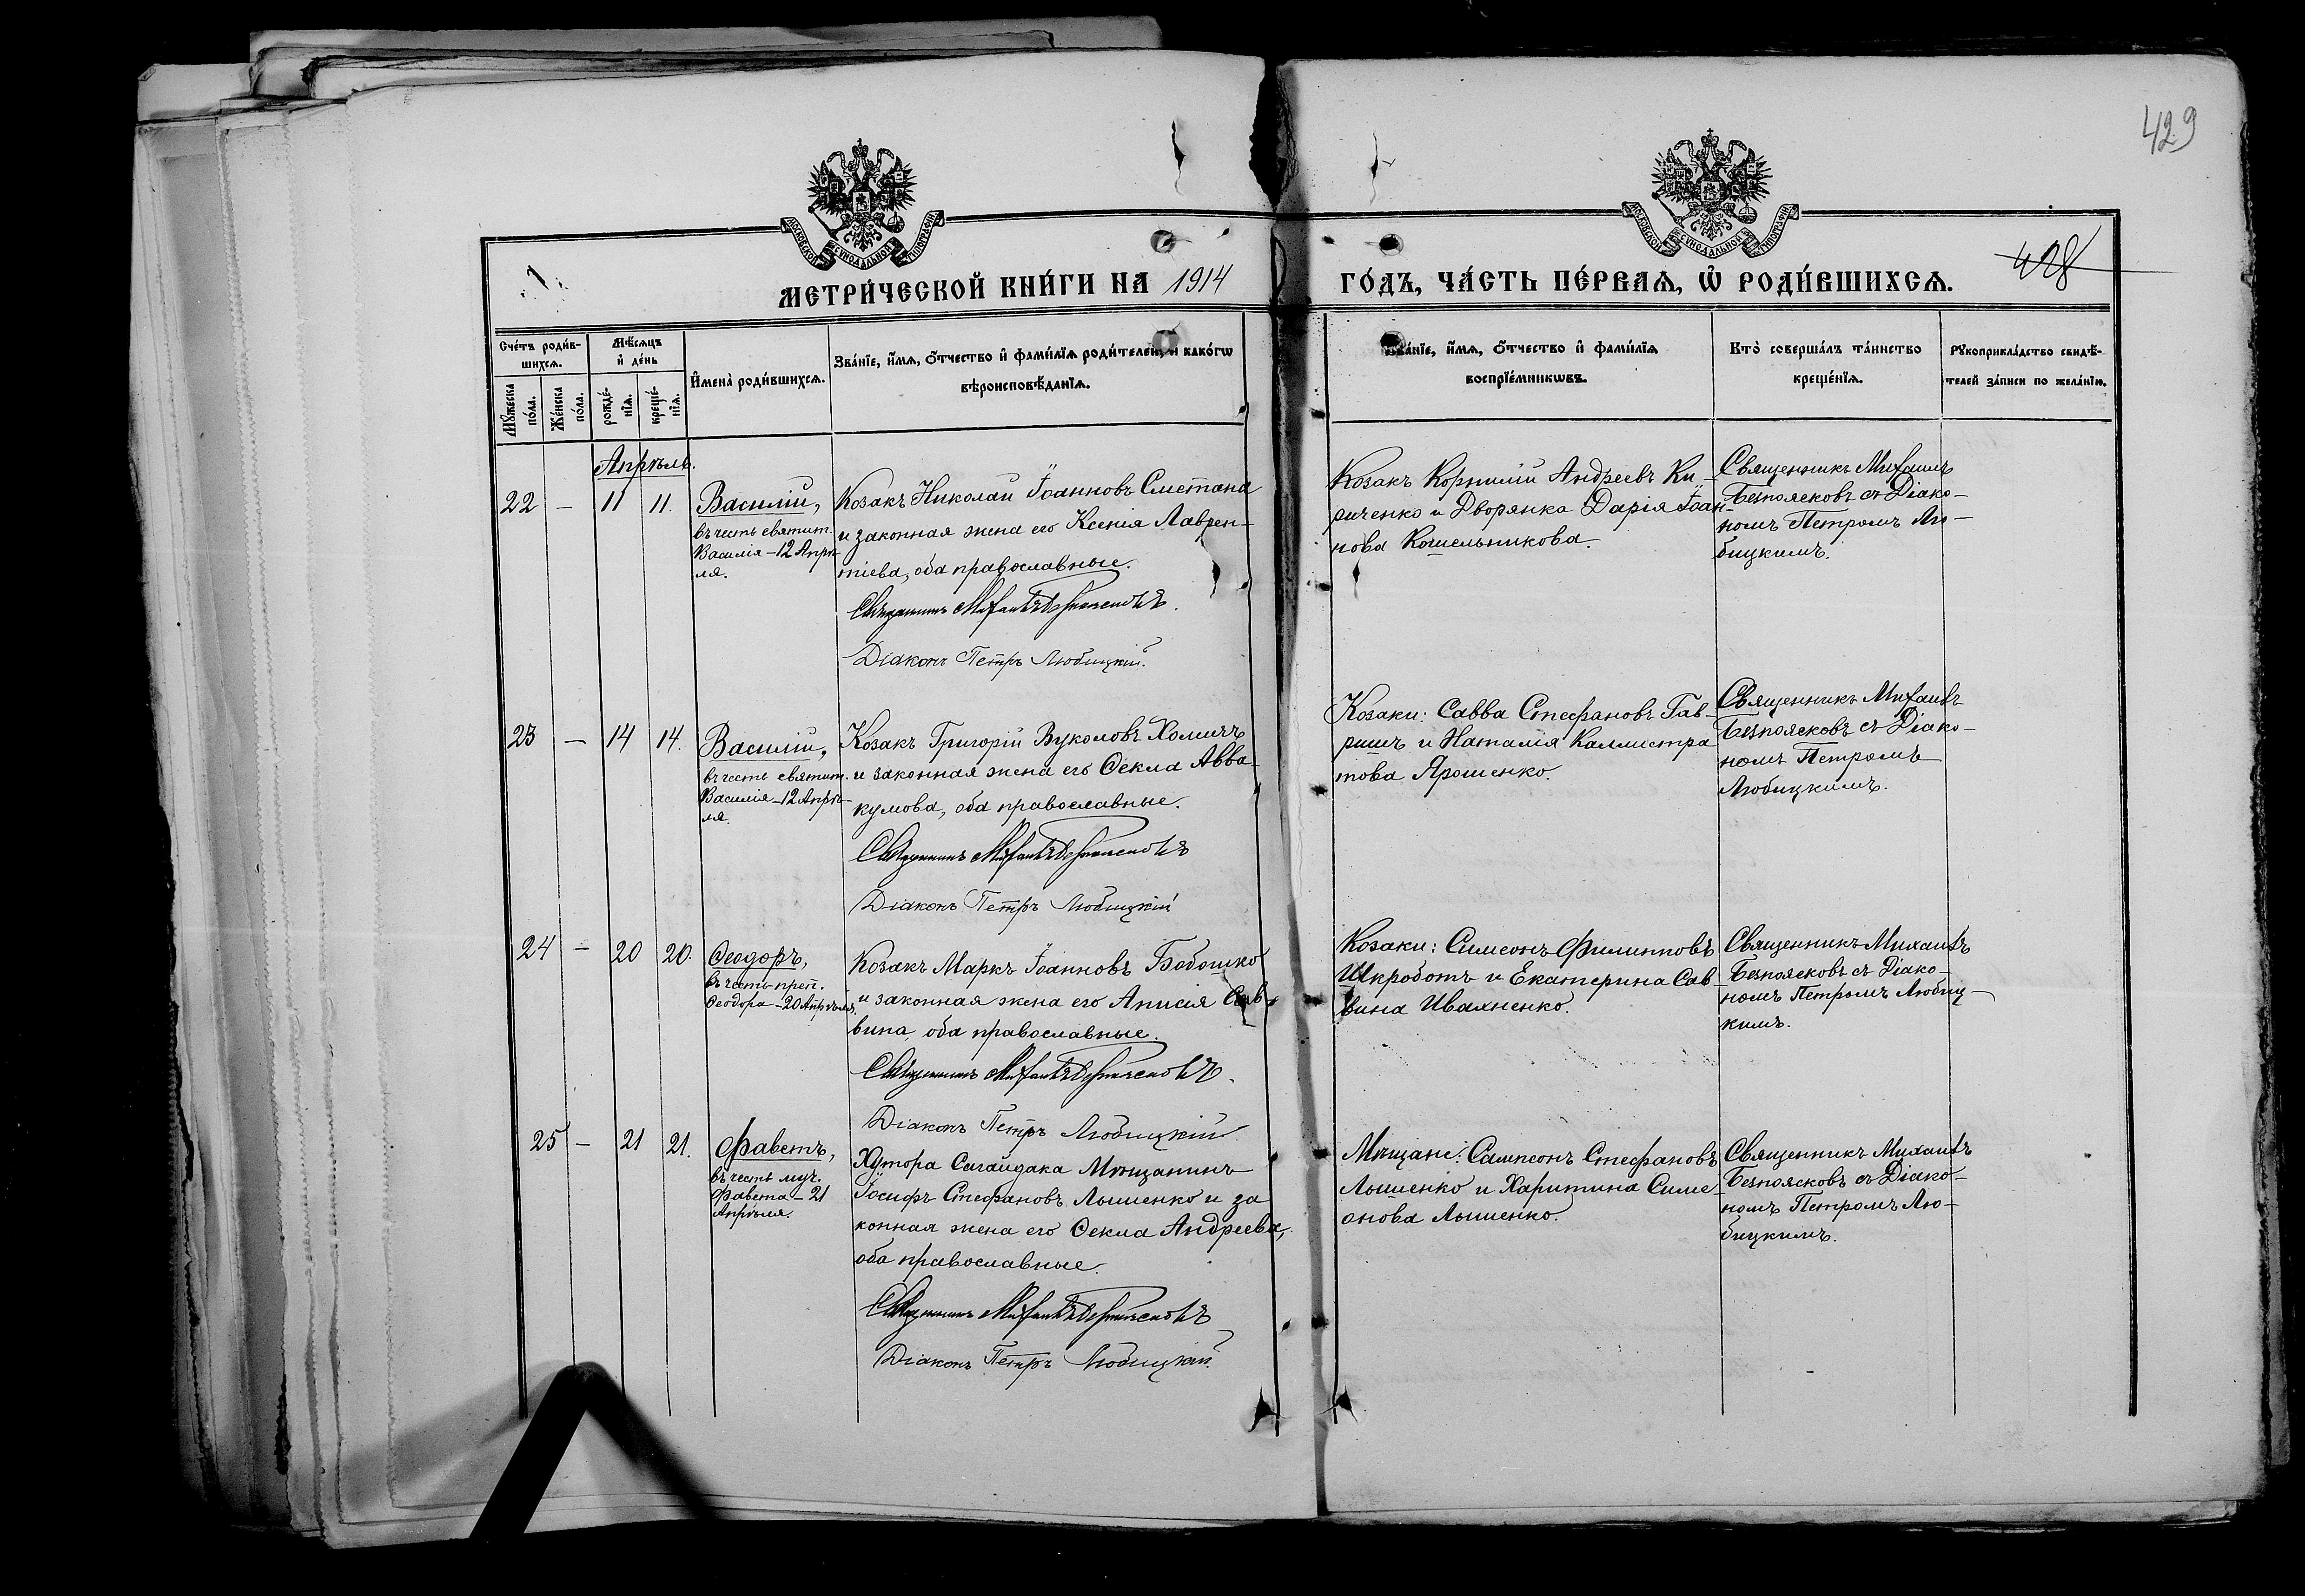 429
МОСКОВСКОЙ СѴНОДАЛЬНОЙ ТИПОГРАФІИ
МОСКОВСКОЙ СѴНОДАЛЬНОЙ ТИПОГРАФІИ
МЕТРИ́ЧЕСКОЙ КНИ́ГИ НА 1914
ГО́ДЪ, ЧА́СТЬ ПЕ́РВАѦ, Ѡ҆ РОДИ́ВШИХСѦ.
428
Сче́тъ роди́в-
шихсѧ.
Мꙋ́жеска
по́ла.
Же́нска
по́ла.
Мѣ́сѧцъ
и҆ де́нь
рожде́-
нїѧ.
креще́-
нїѧ.
И҆мена̀ роди́вшихсѧ.
Зва́нїе, и҆́мѧ, ѻ҆́тчество и҆ фами́лїѧ роди́телей, и҆ како́гѡ
вѣроисповѣ́данїѧ.
Зва́нїе, и҆́мѧ, ѻ҆́тчество и҆ фами́лїѧ
воспрїе́мникѡвъ.
Кто̀ соверша́лъ та́инство
креще́нїѧ.
Рꙋкоприкла́дство свидѣ́-
телей за́писи по жела́нїю.
Апрѣль.
22 — 11 11.
Василій,
въ честь святит.
Василія – 12 Апрѣ-
ля.
Козакъ Николай Іоанновъ Сметана
и законная жена его Ксенія Лаврен-
тіева, оба православные.
Священникъ Михаилъ Безпоясковъ.
Діаконъ Петръ Любицкій.
Козакъ Корнилій Андреевъ Ки-
риченко и Дворянка Дарія Іоан-
нова Кошельникова.
Священникъ Михаилъ
Безпоясковъ съ Діако-
номъ Петромъ Лю-
бицкимъ.
23 — 14 14.
Василій,
въ честь святит.
Василія – 12 Апрѣ-
ля.
Козакъ Григорій Вуколовъ Холмичъ
и законная жена его Ѳекла Авва-
кумова, оба православные.
Священникъ Михаилъ Безпоясковъ
Діаконъ Петръ Любицкій
Козаки: Савва Стефановъ Гав-
ришъ и Наталія Каллистра
това Ярошенко.
Священникъ Михаилъ
Безпоясковъ съ Діако-
номъ Петромъ
Любицкимъ.
24 — 20 20.
Ѳеодоръ,
въ честь преп.
Ѳеодора – 20 Апрѣля.
Козакъ Маркъ Іоанновъ Бобошко
и законная жена его Анисія Сав-
вина, оба православные.
Священникъ Михаилъ Безпоясковъ.
Діаконъ Петръ Любицкій
Козаки: Симеонъ Филипповъ
Шкроботъ и Екатерина Сав-
вина Иваxненко.
Священникъ Михаилъ
Безпоясковъ съ Діако-
номъ Петромъ Любиц-
кимъ.
25 — 21 21.
Фавстъ,
въ честь муч.
Фавста – 21
Апрѣля.
Хутора Сагайдака Мѣщанинъ
Іосифъ Стефановъ Лышенко и за
конная жена его Ѳекла Андреева,
оба православные.
Священникъ Михаилъ Безпоясковъ
Діаконъ Петръ Любицкій.
Мѣщане: Сампсонъ Стефановъ
Лышенко и Харитина Симе-
онова Лышенко.
Священникъ Михаилъ
Безпоясковъ съ Діако-
номъ Петромъ Лю-
бицкимъ.